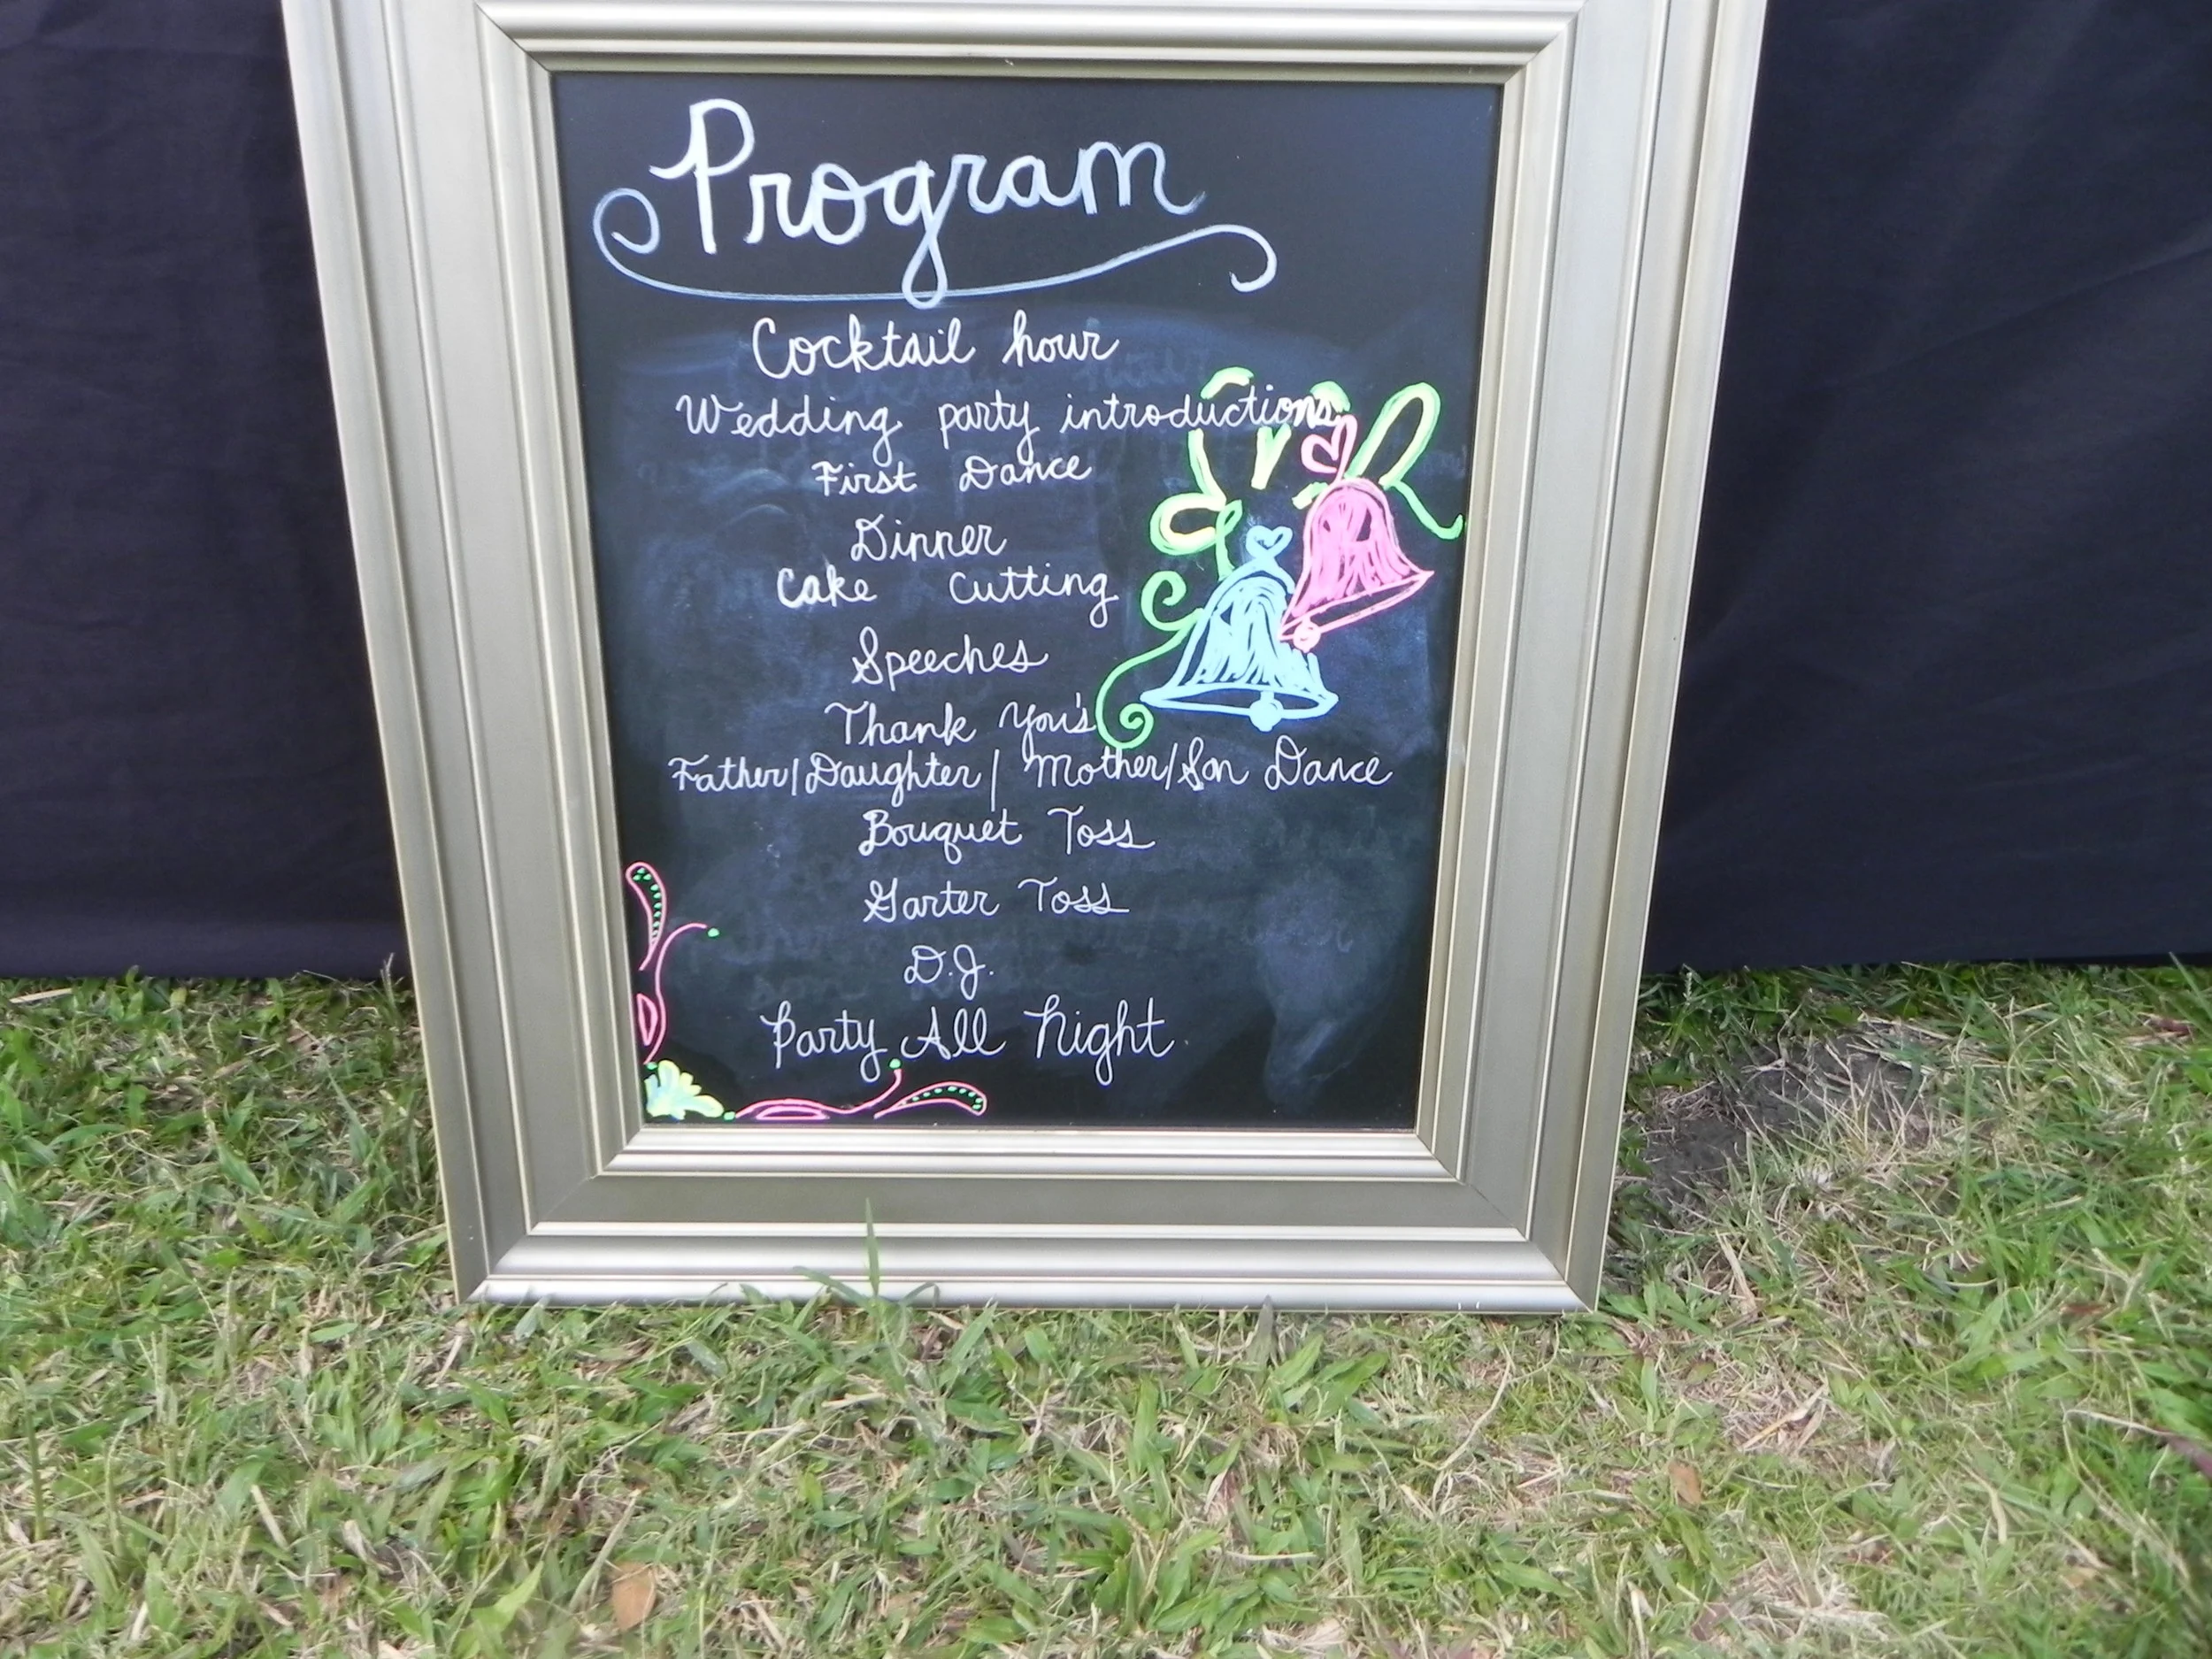 Program
Cocktail hour
Wedding party introductions
First Dance
Dinner
Cake Cutting
Speeches
Thank You's
Father/Daughter/ Mother/Son Dance
Bouquet Toss
Garter Toss
D.J.
Party All Night